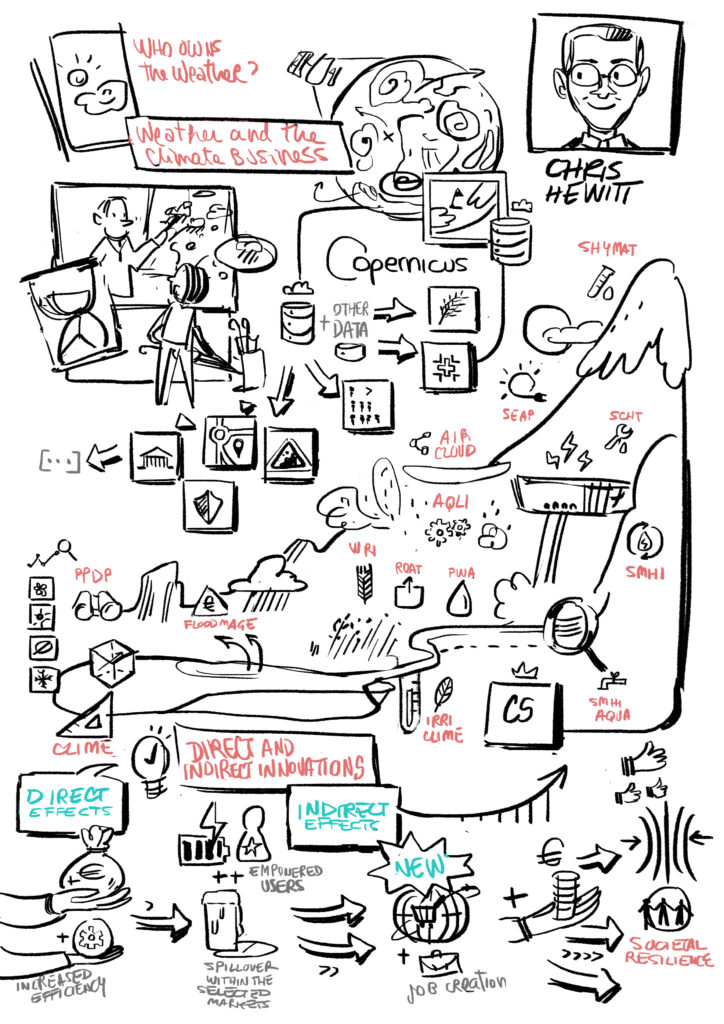 WHO OWNS
THE WEATHER?
WEATHER AND THE
CLIMATE BUSINESS
CHRIS
HEWITT
COPERNICUS
SHYMAT
+ OTHER
DATA
SEAP
SCHT
AIR
CLOUD
[...]
AQLI
WRI
ROAT
PWA
SMHI
PPDP
€
FLOODMAGE
CS
SMHI
AQUA
IRRI
CLIME
CLIME
DIRECT AND
INDIRECT INNOVATIONS
DIRECT
EFFECTS
INDIRECT
EFFECTS
++ EMPOWERED
USERS
NEW
€
+€
+
+
+
INCREASED
EFFICIENCY
SPILLOVER
WITHIN THE
SELECTED
MARKETS
JOB CREATION
SOCIETAL
RESILIENCE